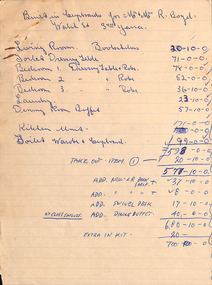 Built in Cupboards for Mr & Mrs R. Boyd.
Walsh St. Sth Yarra.
Living Room. Bookshelves 20-10-0
Toilet Dressing Table 71-0-0
Bedroom 1 Dressing Table & Robe. 78-0-0
Bedroom 2 " " Robe. 52-0-0
Bedroom 3. " Robe. 36-10-0
Laundry 23-10-0
Dining Room Buffet 57-10-0
Kitchen Units. 171-0-0
Toilet Wardrobe & Cupboard. 99-0-0
598-0-0
TAKE OUT - ITEM ① - 20-10-0
578-10-0
ADD. 37-10-0
ADD. " " " 8-0-0
ADD. SWIVEL DESK 17-10-0
ADD. DINING BUFFET 40-0-0
680-10-0
EXTRA IN KIT - 20-
700-0-0